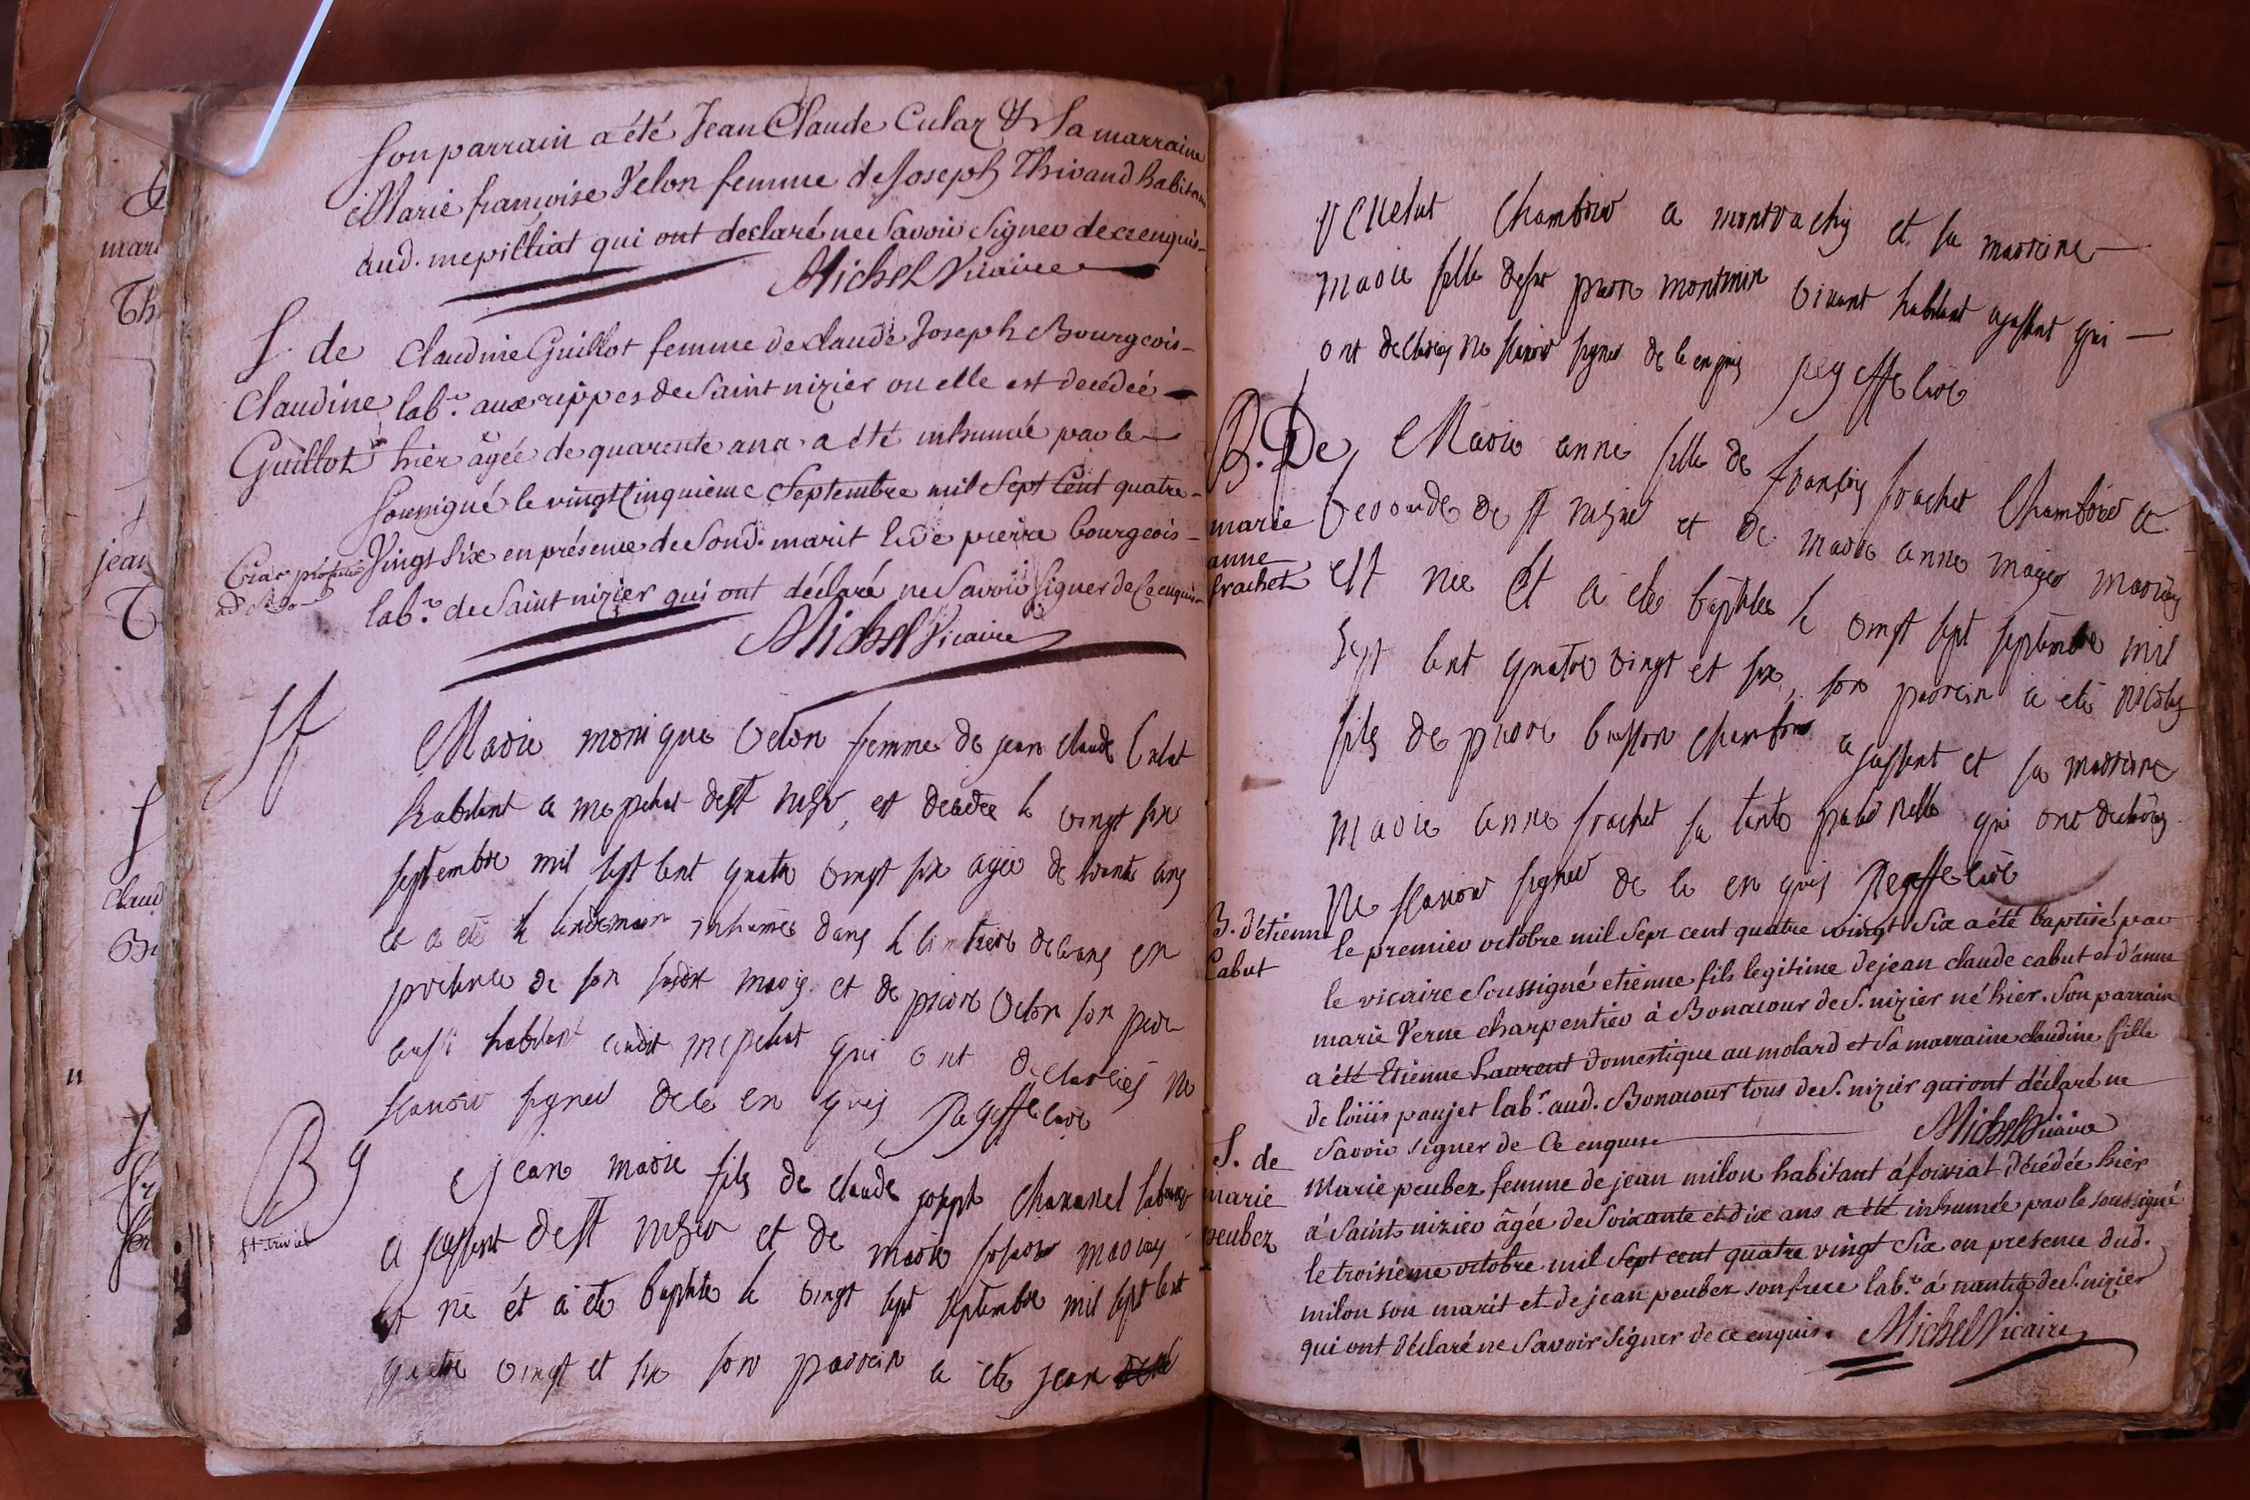 Son parrain a été Jean Claude Cular & Sa marraine
Marie françoise Velon femme de Joseph Thivaud habitan
aud. mepilliat qui ont declaré ne Savoir Signer de ce enquis
Michel Vicaire
S. de
Claudine
Guillot
Claudine Guillot femme de claude Joseph Bourgeois
labr. aux rippes de Saint nizier ou elle est decédeé
hier âgée de quarente ans a été inhumée par le
Sousigné le vingt Cinquieme Septembre mil Sept Cent quatre
Vingt Six en présence de Sond. marit & de pierre bourgeois
labr. de Saint nizier qui ont déclaré ne Savoir Signer de Ce enquis
Michel Vicaire
Marie monique Velon femme de jean claude Culat
habitant a mepeliat de st nizier, est decedee le vingt six
septembre mil sept cent quatre vingt six agée de trente ans
et a eté le lendemain inhumée dans le cimetiere de ceans en
presence de son susdit marij et de pierre Velon son pere
aussi habitant audit mepeliat qui ont declarés ne
scavoir signer de ce en quis
B
st trivier
jean marie fils de claude joseph chavanel laboureur
a jassent de st nizier et de marie mariey
est né et a ete baptisé le vingt sept septembre mil sept cent
quatre vingt et six son parrein a ete jean
chambrier a montrachy et sa marrine
marie fille de feu pierre montmin vivant habitant ajassent qui
ont declarés ne scavoir signer de ce en quis
B. De
marie
anne
frachet
Marie anne fille de françois frachet chambrier a
de st nizier et de marie anne mariey
est nee et a ete baptisee le vingt sept septembre mil
sept cent quatre vingt et six, son parrein a ete nicolas
fils de pierre buffon chambrier a jassent et sa marrine
marie anne frachet sa tante paternelle qui ont declarés
ne scavoir signer de ce en quis
B. d'étienne
Cabut
le premier octobre mil Sept cent quatre vingt Six a été baptisé par
le vicaire Soussigné etienne fils legitime de jean claude cabut et d'anne
marie Verne charpentier à Bonacour de S. nizier né hier. Son parrain
a été Etienne Laurent domestique au molard et Sa marraine claudine fille
de loüis paujet labr. aud. Bonacour tous de S. nizier qui ont déclaré ne
Savoir signer de Ce enquis
Michel Vicaire
S. de
marie
peubez
Marie peubez femme de jean milon habitant à foiriat décédée hier
à Saint nizier âgée de Soixante et dix ans a été inhumée par le soussigné
le troisième octobre mil Sept cent quatre vingt Six en presence dud.
milon son marit et de jean peubez son frere labr. à nantua de S. nizier
qui ont déclaré ne Savoir Signer de ce enquis.
Michel Vicaire